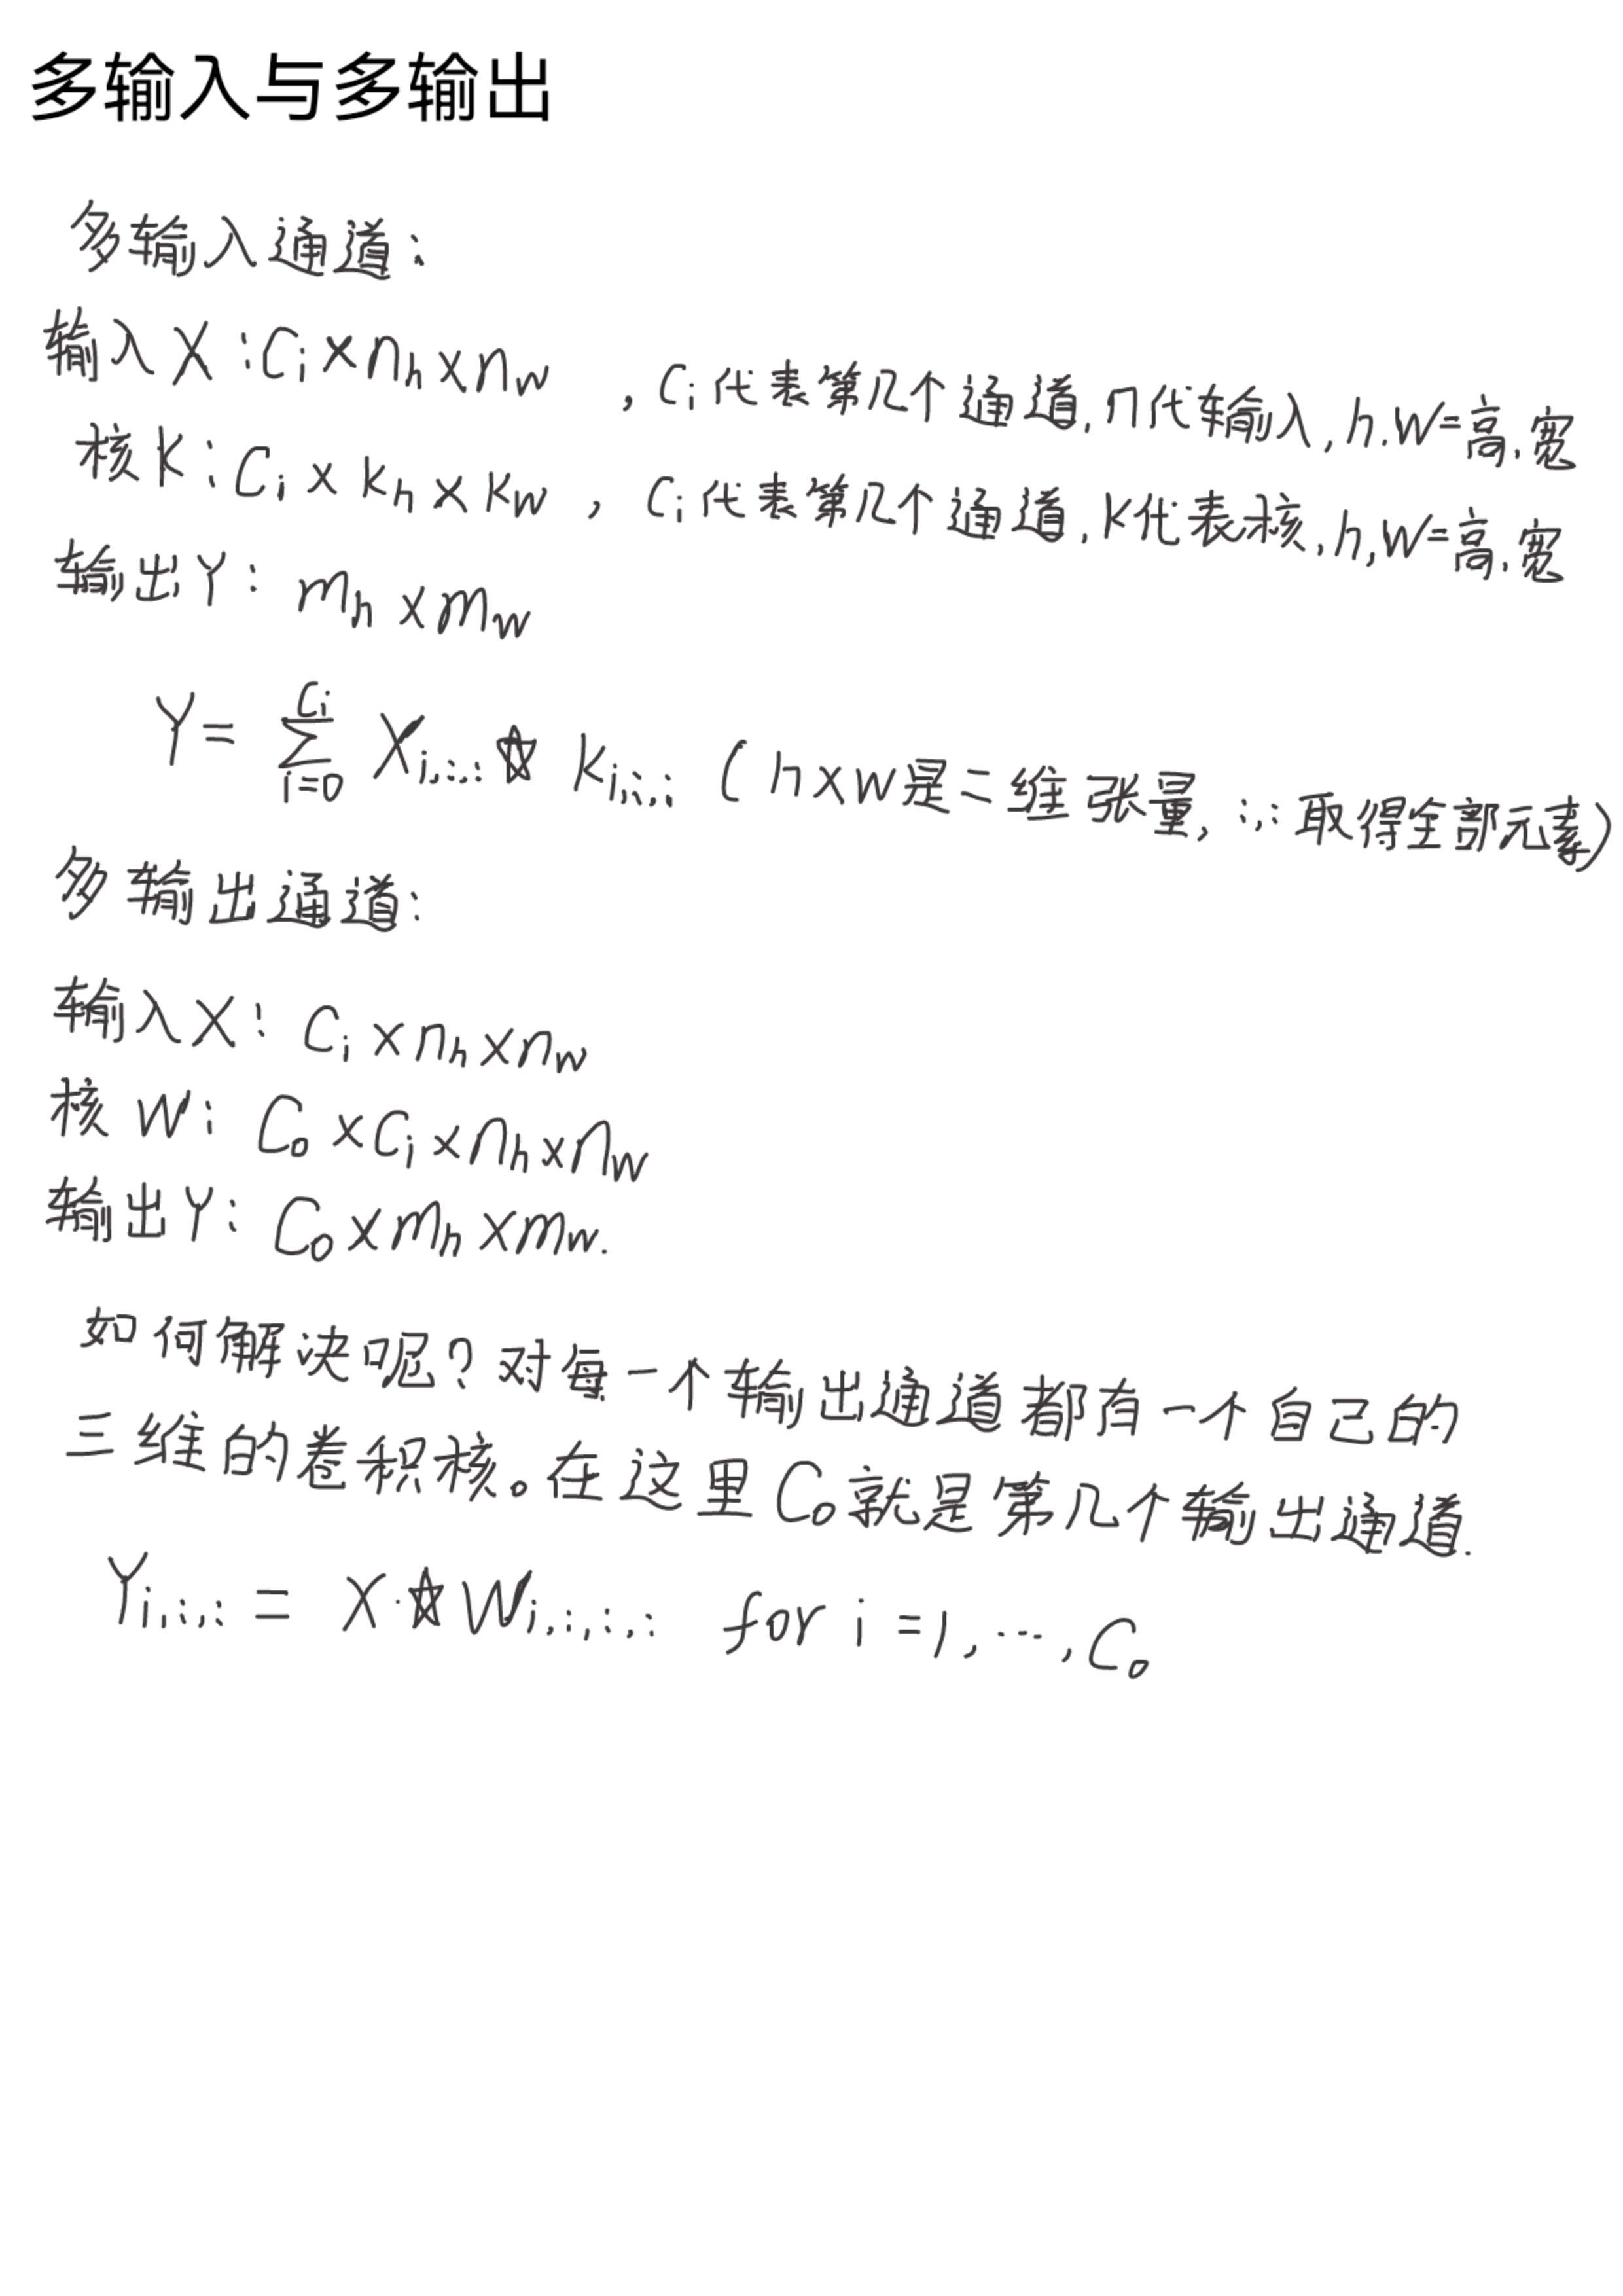 多输入与多输出
多输入通道:
输入X:Ci×nh×nw ,Ci代表第几个通道,n代输入,h.w=高.宽
核K:Ci×kh×kw , Ci代表第几个通道,K代表核,h,w=高.宽
输出Y: mh×mw
Y= ∑_{i=0}^{Ci} Xi,:,: ☆ Ki,:,: (h×w是二维张量, :,:取得全部元素)
多输出通道:
输入X: Ci×nh×nw
核W: Co×Ci×nh×nw
输出Y: Co×mh×mw.
如何解决呢?对每一个输出通道都有一个自己的
三维的卷积核。在这里Co就是第几个输出通道.
Yi,:,: = X·☆Wi,:,:,: for i=1,···,Co